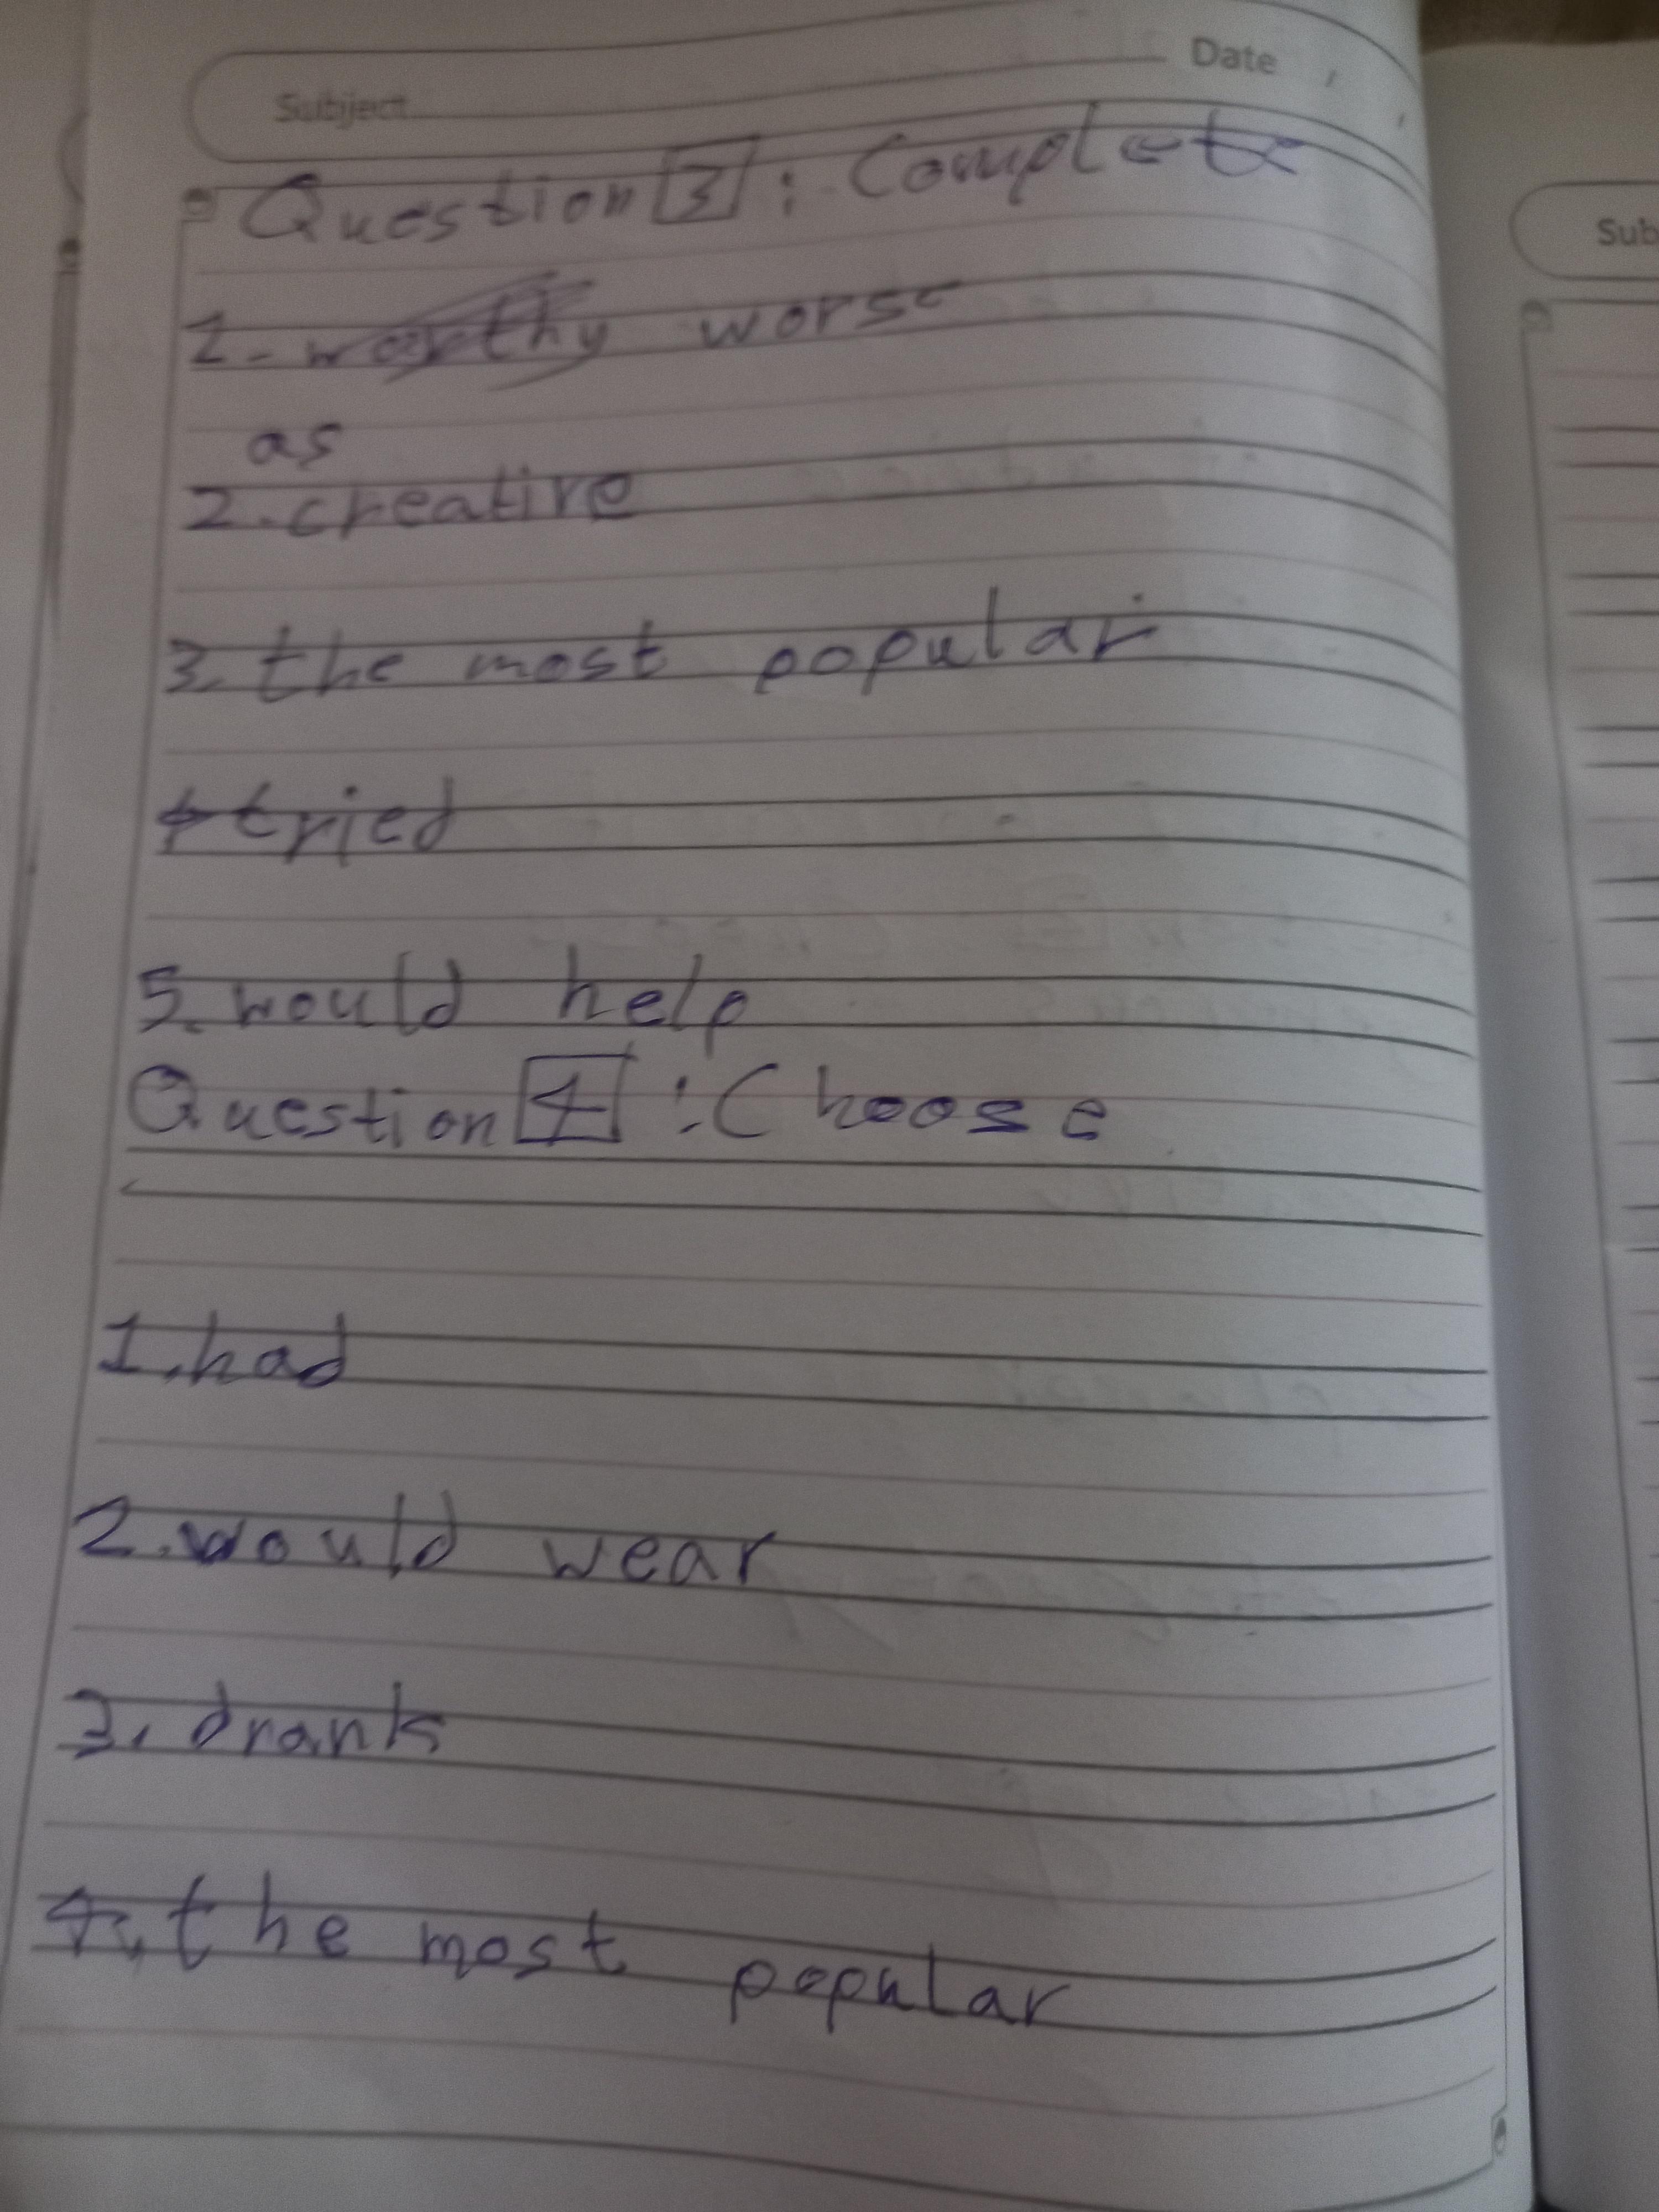 Subject Date
Question 3 : Complete
1- worthy worse
as
2. creative
3. the most popular
4 tried
5. would help
Question 4 : Choose
1. had
2. would wear
3. drank
4. the most popular
Sub